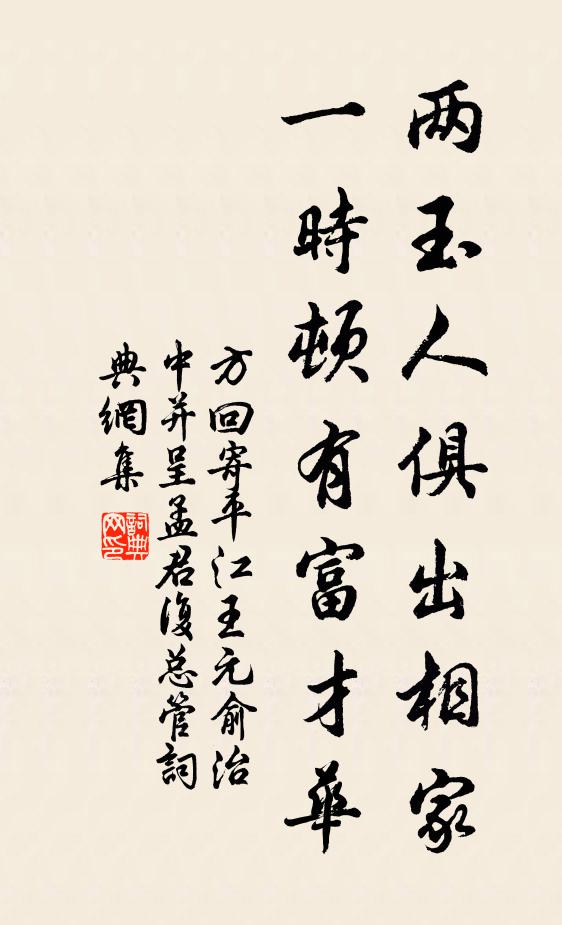 两玉人俱出相家
一時頓有富才華
方回寄平江王元俞治
中并呈孟君復总管詞
典網集
詞典
网印